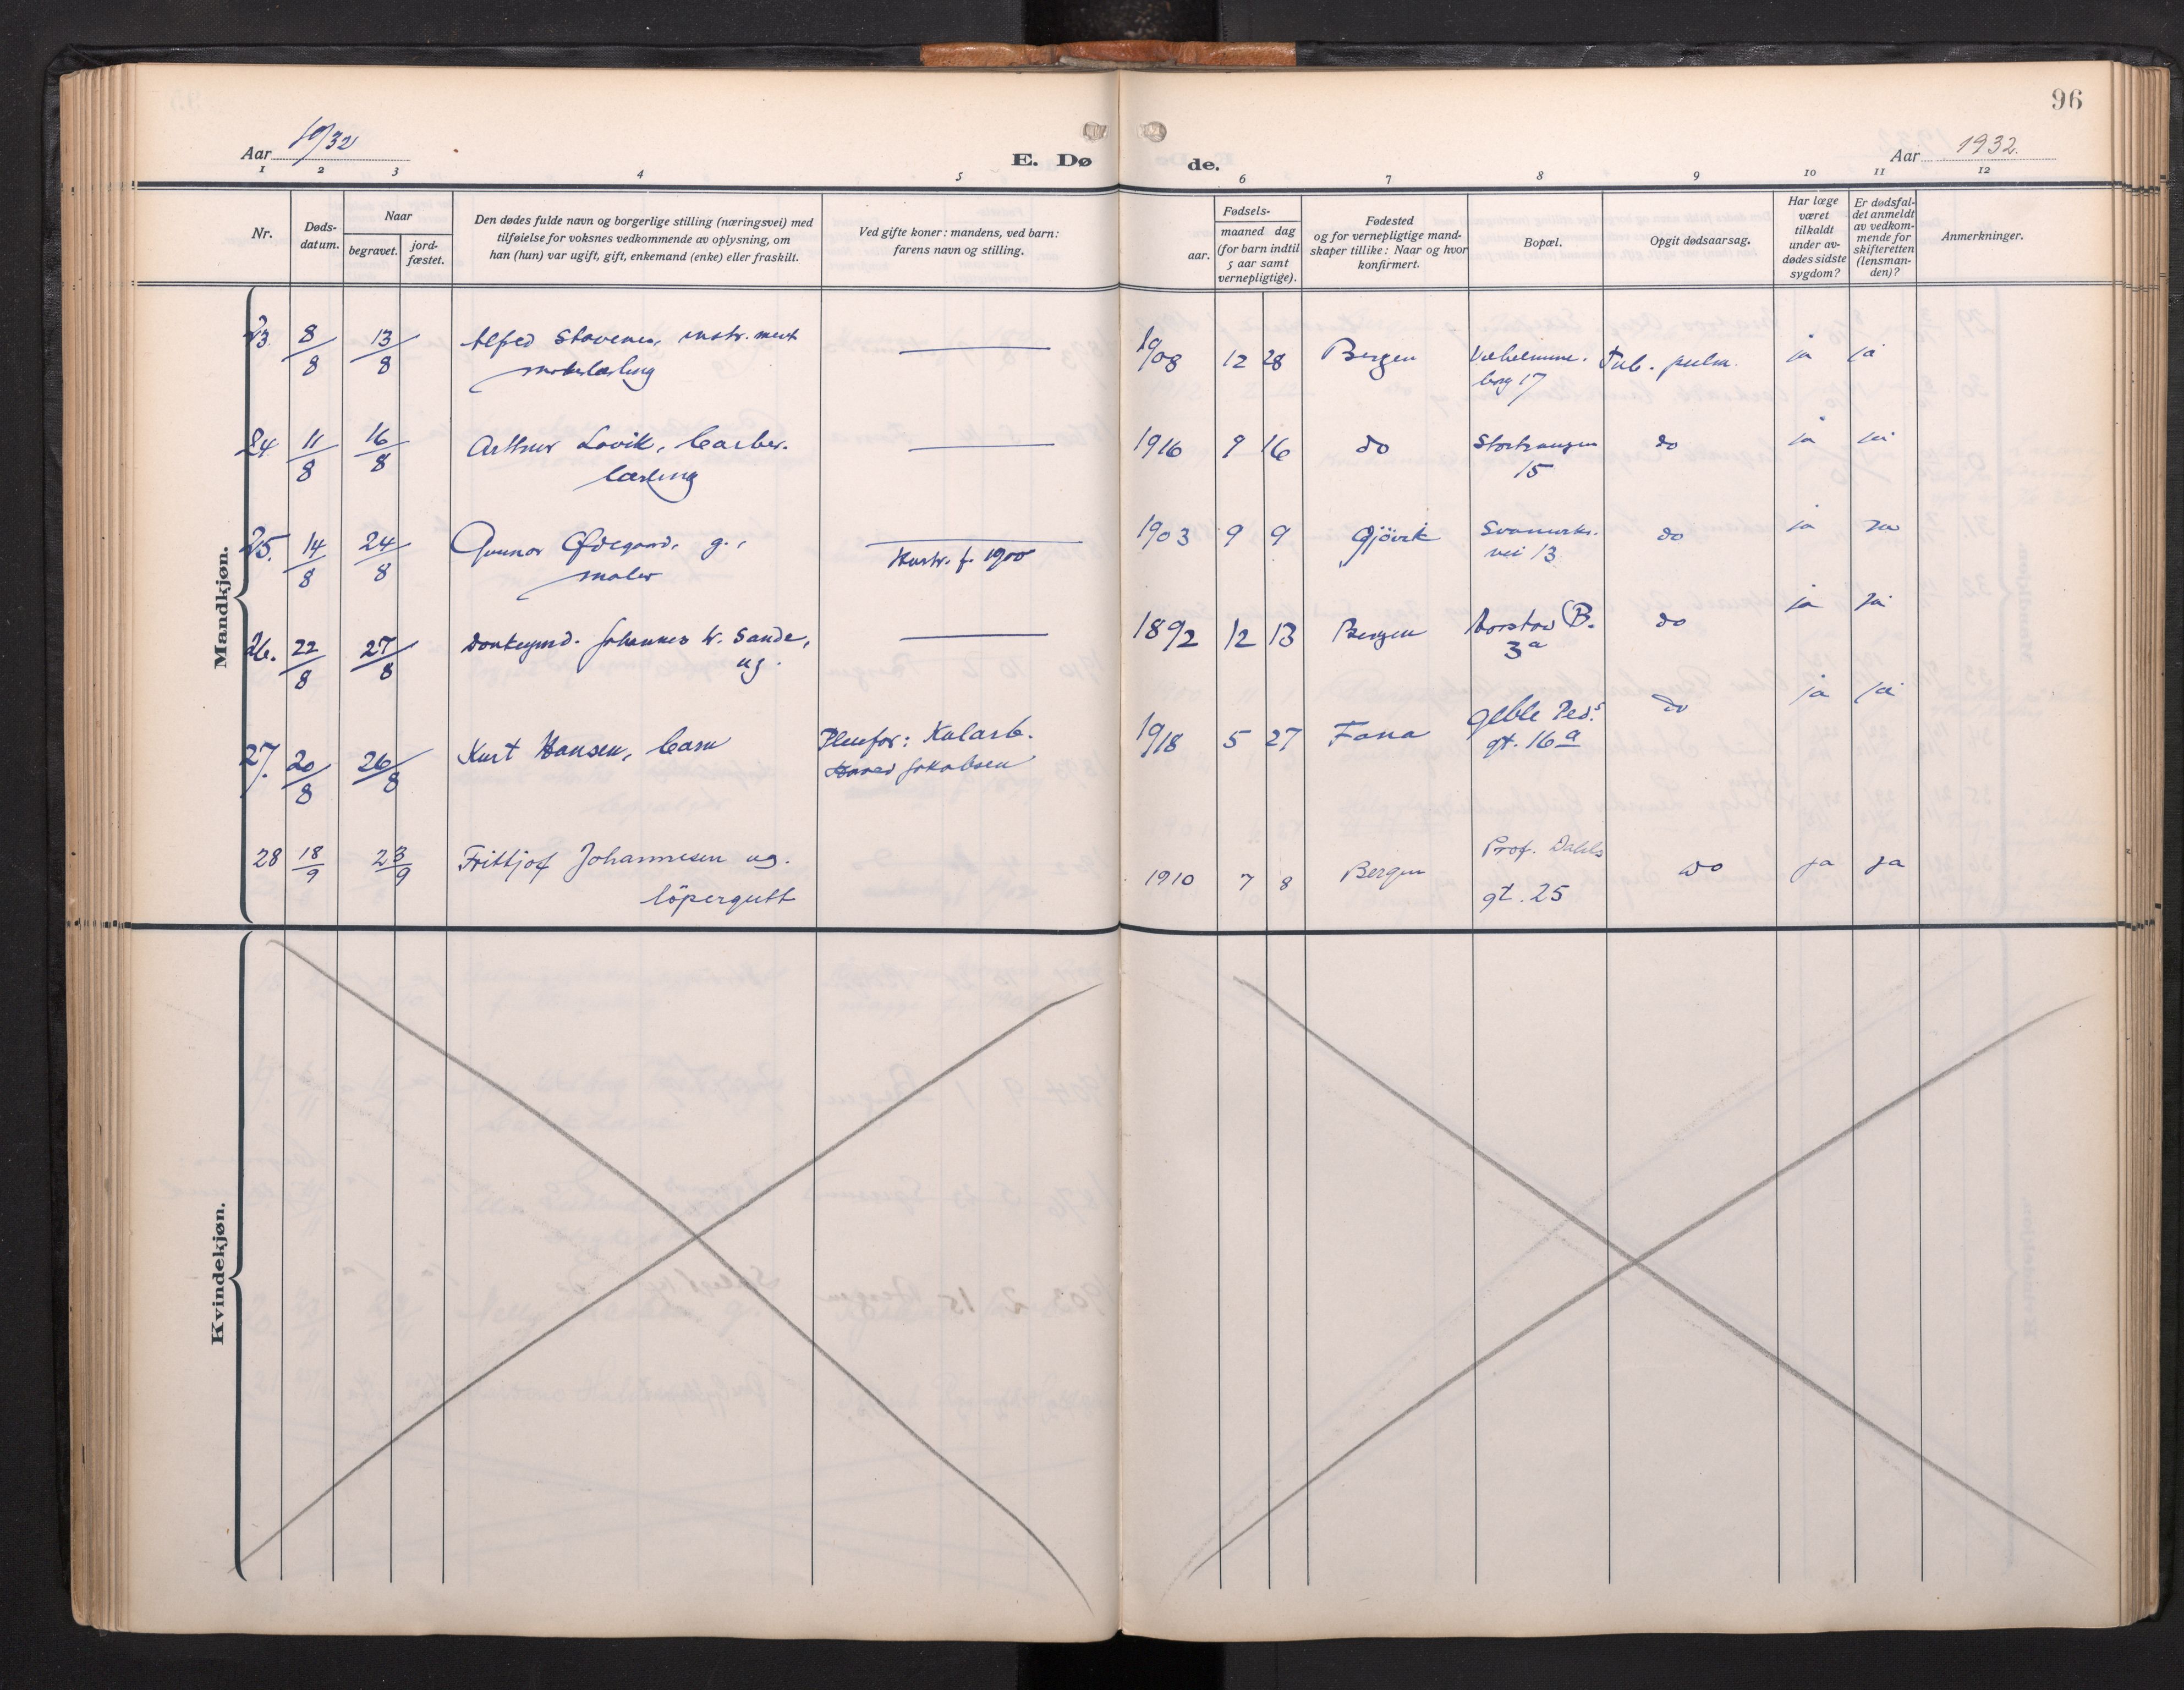 96
Aar 1932
E. Døde.
Aar 1932.
1 2 3 4 5 6 7 8 9 10 11 12
Nr.
Døds-
datum.
Naar
begravet.
jord-
fæstet.
Den dødes fulde navn og borgerlige stilling (næringsvei) med
tilføielse for voksnes vedkommende av oplysning, om
han (hun) var ugift, gift, enkemand (enke) eller fraskilt.
Ved gifte koner: mandens, ved barn:
farens navn og stilling.
Fødsels-
aar.
maaned dag
(for barn indtil
5 aar samt
vernepligtige).
Fødested
og for vernepligtige mand-
skaper tillike: Naar og hvor
konfirmert.
Bopæl.
Opgit dødsaarsag.
Har læge
været
tilkaldt
under av-
dødes sidste
sygdom?
Er dødsfal-
det anmeldt
av vedkom-
mende for
skifteretten
(lensman-
den)?
Anmerkninger.
Mandkjøn.
23. 8/8 13/8 Alfred 1908 12 28 Bergen Tub. pulm. ja ja
borg 17
24 11/8 16/8 Arthur Lovik, barber- 1916 9 16 do do ja ja
lærling 15
25. 14/8 24/8 Gunnar Ødegaard, g., 1903 9 9 Gjövik do ja ja
maler Hustr. f. 1900 vei 13
26. 22/8 27/8 Johannes W. Sande, 1892 12 13 Bergen B. do ja ja
ug. 3a
27. 20/8 26/8 Kurt Hansen, barn Pleiefar: Kularb. 1918 5 27 Fana Geble Ped.s do ja ja
Jakobsen gt. 16a
28 18/9 23/9 Frittjof Johannesen ug. 1910 7 8 Bergen Prof. Dahls do ja ja
löpergutt gt. 25
Kvindekjøn.